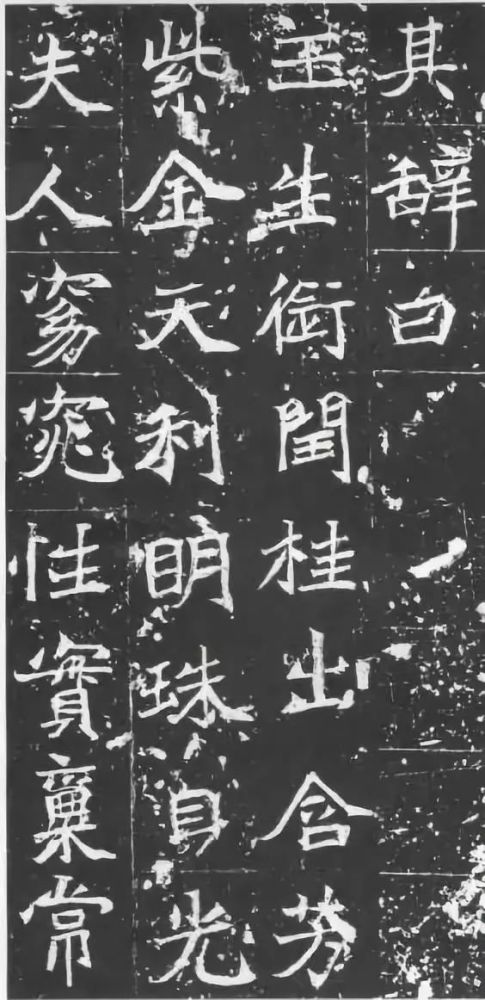 其辞曰
玉生衘閏桂出含芳
紫金天利明珠自光
夫人窈窕性實稟常